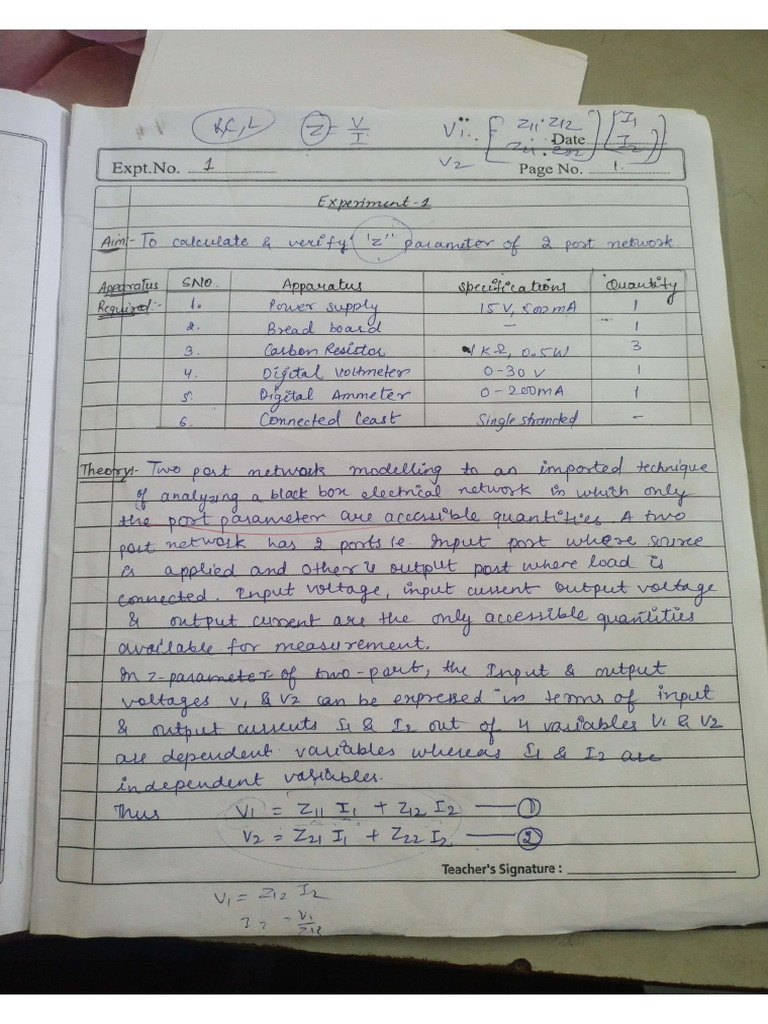 Z = V/I
V1 [Z11 Z12] [I1]
V2 [Z21 Z22] [I2]
Date
Expt.No. 1
Page No. 1.
Experiment-1
Aim:- To calculate & verify "Z" parameter of 2 port network.
Apparatus Required:-
SNO. Apparatus Specifications Quantity
1. Power supply 15V, 500mA 1
2. Bread board - 1
3. Carbon Resistor 1KΩ, 0.5W 3
4. Digital Voltmeter 0-30V 1
5. Digital Ammeter 0-200mA 1
6. Connected Least Single stranded -
Theory:- Two port network modelling to an imported technique
of analyzing a black box electrical network in which only
the port parameter are accessible quantities. A two
port network has 2 ports i.e. Input port where source
is applied and other is output port where load is
connected. Input voltage, input current output voltage
& output current are the only accessible quantities
available for measurement.
In z-parameter of two-port, the Input & output
voltages V1 & V2 can be expressed in terms of input
& output currents I1 & I2 out of 4 variables V1 & V2
are dependent variables whereas I1 & I2 are
independent variables.
Thus V1 = Z11 I1 + Z12 I2 — ①
V2 = Z21 I1 + Z22 I2 — ②
Teacher's Signature :
V1 = Z12 I2
I2 = V1/Z12